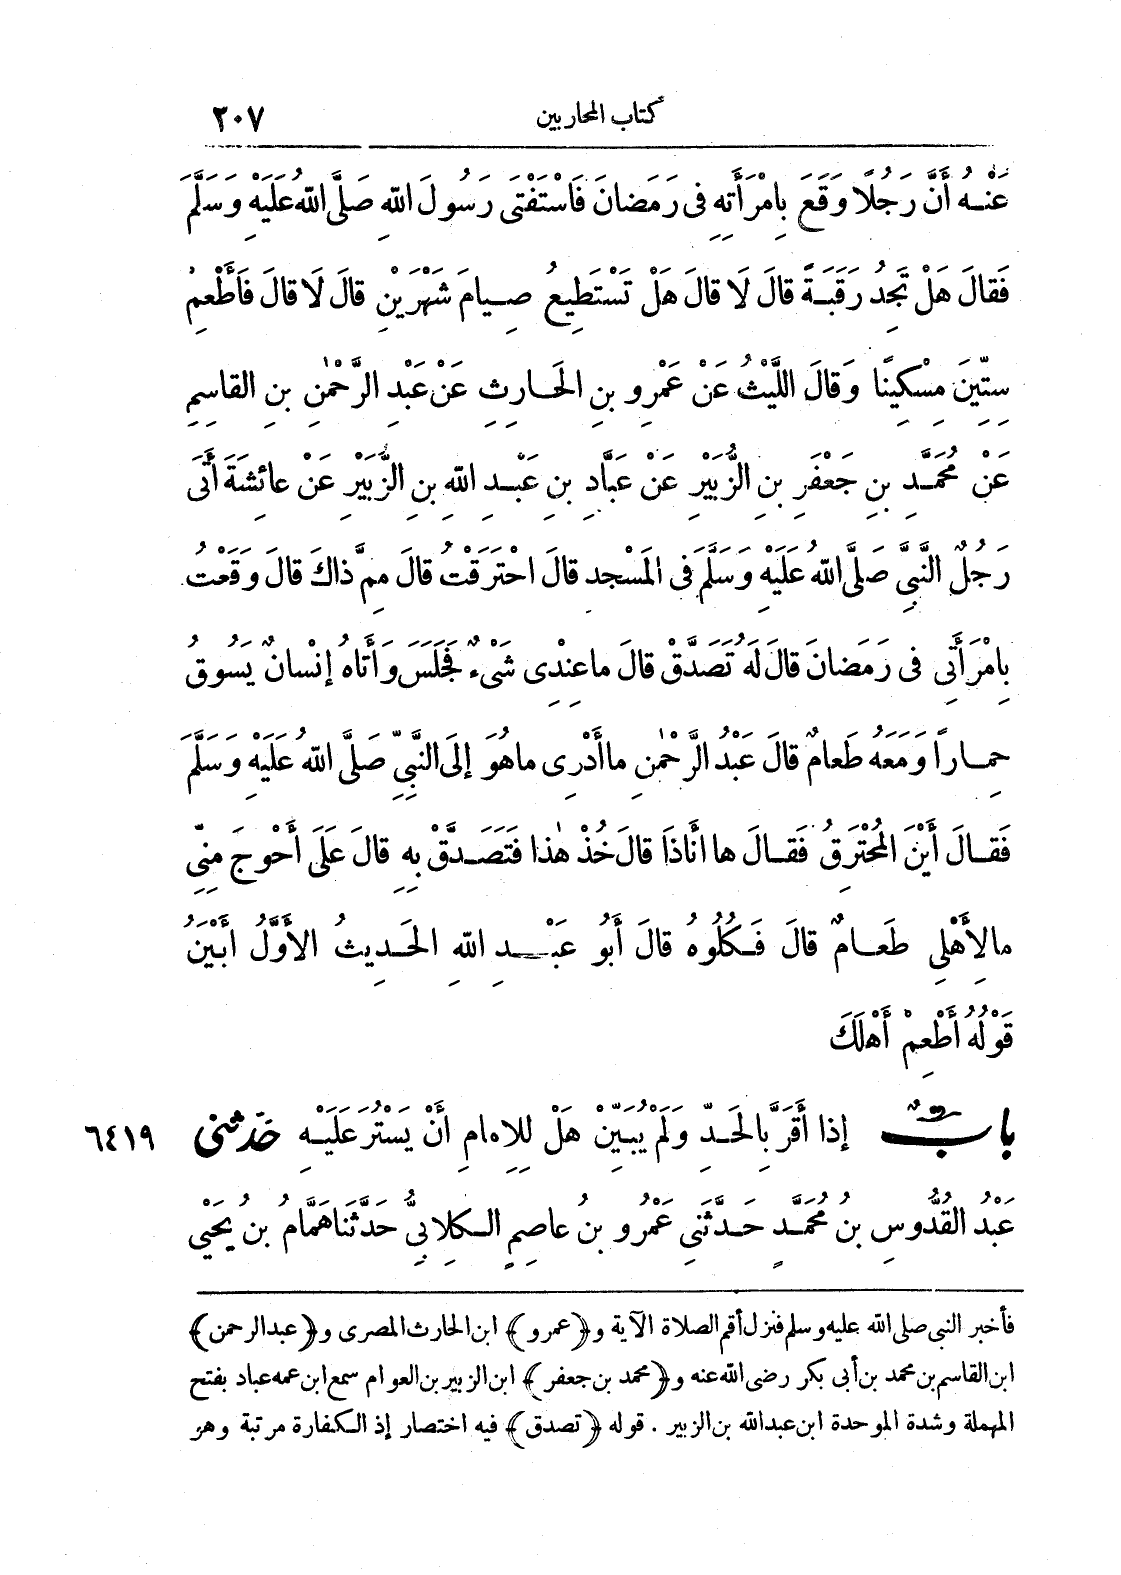 كتاب المحاربين ٢٠٧
عَنْهُ أَنَّ رَجُلًا وَقَعَ بِامْرَأَتِهِ فِى رَمَضَانَ فَاسْتَفْتَى رَسُولَ اللهِ صَلَّى اللهُ عَلَيْهِ وَسَلَّمَ
فَقَالَ هَلْ تَجِدُ رَقَبَةً قَالَ لَا قَالَ هَلْ تَسْتَطِيعُ صِيامَ شَهْرَيْنِ قَالَ لَا قَالَ فَأَطْعِمْ
سِتِّينَ مِسْكِينًا وَقَالَ اللَّيْثُ عَنْ عَمْرِو بنِ الْحَارِثِ عَنْ عَبْدِ الرَّحْمٰنِ بنِ القاسِمِ
عَنْ مُحَمَّدِ بنِ جَعْفَرِ بنِ الزُّبَيْرِ عَنْ عَبَّادِ بنِ عَبْدِ اللهِ بنِ الزُّبَيْرِ عَنْ عائِشَةَ أَتَى
رَجُلٌ النَّبِىَّ صَلَّى اللهُ عَلَيْهِ وَسَلَّمَ فِى الْمَسْجِدِ قالَ احْتَرَقْتُ قالَ مِمَّ ذاكَ قالَ وَقَعْتُ
بِامْرَأَتِى فِى رَمَضانَ قالَ لَهُ تَصَدَّقْ قالَ ما عِنْدِى شَىْءٌ فَجَلَسَ وَأَتاهُ إِنْسانٌ يَسُوقُ
حِمَارًا وَمَعَهُ طَعامٌ قالَ عَبْدُ الرَّحْمٰنِ ما أَدْرِى ما هُوَ إِلَى النَّبِىِّ صَلَّى اللهُ عَلَيْهِ وَسَلَّمَ
فَقَالَ أَيْنَ الْمُحْتَرِقُ فَقَالَ ها أَنَا ذَا قالَ خُذْ هٰذا فَتَصَدَّقْ بِهِ قالَ عَلَى أَحْوَجَ مِنِّى
ما لِأَهْلِى طَعَامٌ قالَ فَكُلُوهُ قالَ أَبُو عَبْدِ اللهِ الْحَدِيثُ الأَوَّلُ أَبْيَنُ
قَوْلُهُ أَطْعِمْ أَهْلَكَ
بابٌ إذا أَقَرَّ بِالْحَدِّ وَلَمْ يُبَيِّنْ هَلْ لِلإِمامِ أَنْ يَسْتُرَ عَلَيْهِ حَدَّثَنِى ٦٤١٩
عَبْدُ القُدُّوسِ بنُ مُحَمَّدٍ حَدَّثَنِى عَمْرُو بنُ عاصِمٍ الكِلابِىُّ حَدَّثَنا هَمَّامُ بنُ يَحْيَى
فأخبر النبى صلى الله عليه وسلم فنزل أقم الصلاة الآية و﴿عمرو﴾ ابن الحارث المصرى و﴿عبد الرحمن﴾
ابن القاسم بن محمد بن أبى بكر رضى الله عنه و﴿محمد بن جعفر﴾ ابن الزبير بن العوام سمع ابن عمه عباد بفتح
المهملة وشدة الموحدة ابن عبد الله بن الزبير . قوله ﴿تصدق﴾ فيه اختصار إذ الكفارة مرتبة وهو